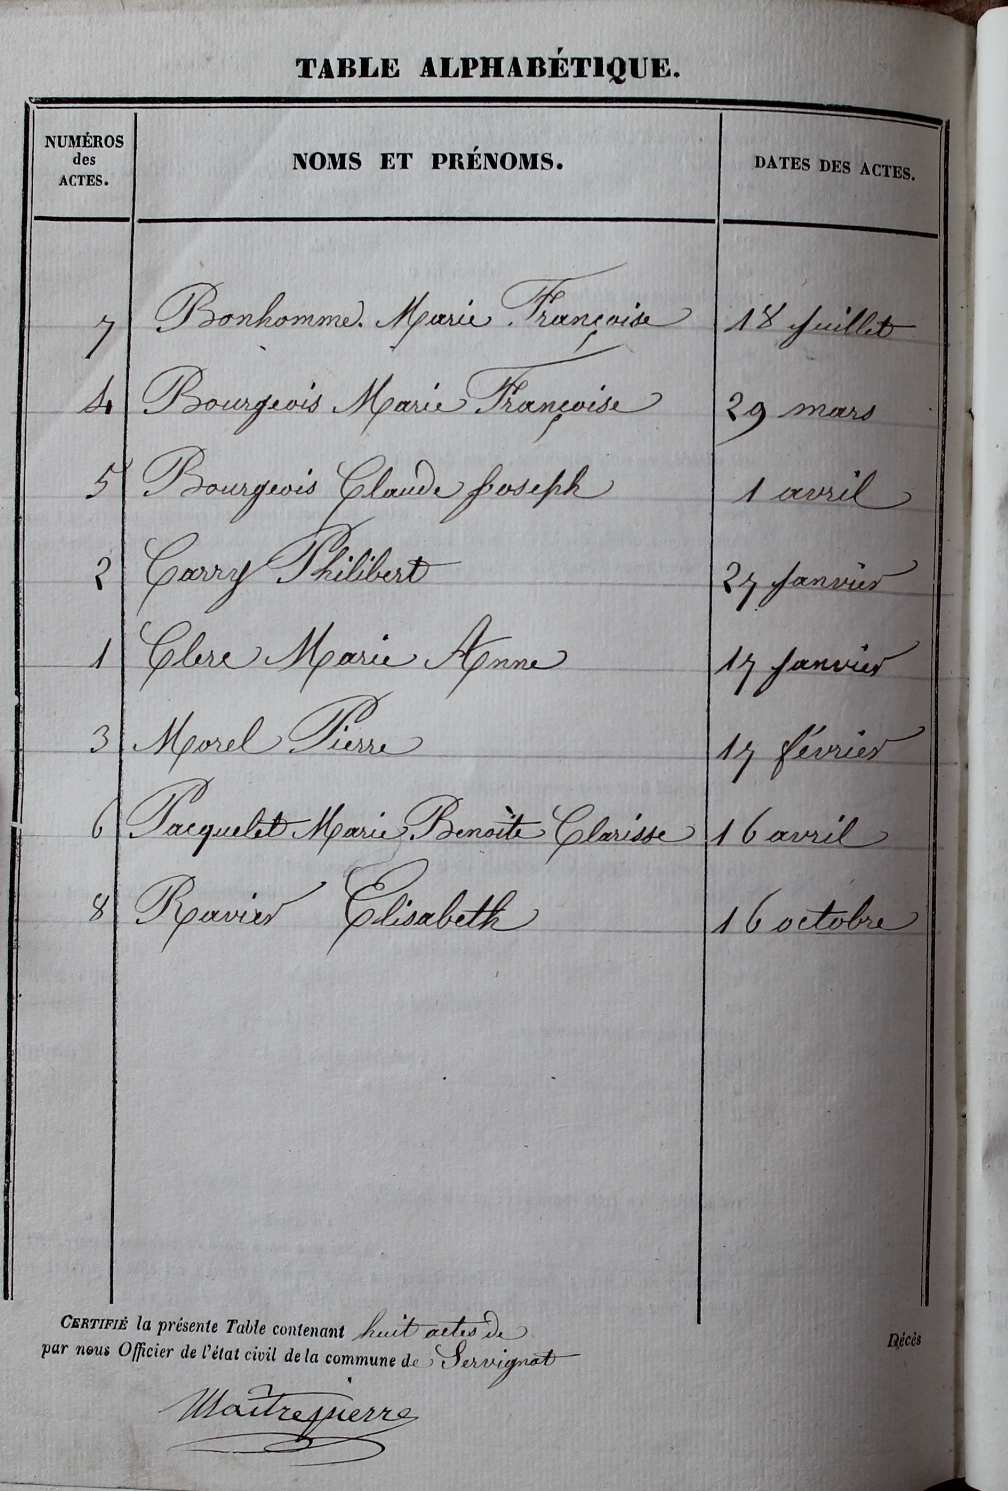 TABLE ALPHABÉTIQUE.
NUMÉROS des ACTES. NOMS ET PRÉNOMS. DATES DES ACTES.
7 Bonhomme. Marie Françoise 18 Juillet
4 Bourgeois Marie Françoise 29 mars
5 Bourgeois Claude Joseph 1 avril
2 Carry Philibert 27 Janvier
1 Clere Marie Anne 17 Janvier
3 Morel Pierre 17 février
6 Pacquelet Marie Benoîte Clarisse 16 avril
8 Ravier Elisabeth 16 octobre
CERTIFIÉ la présente Table contenant huit actes de Décès
par nous Officier de l'état civil de la commune de Servignat
Maîtrepierre